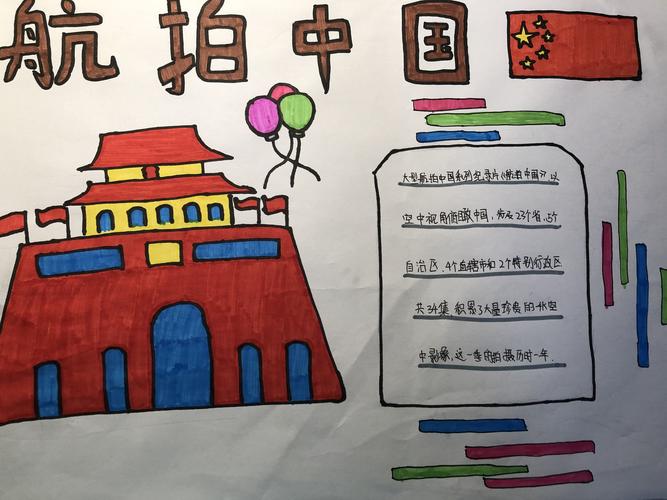 航拍中国
大型航拍中国系列纪录片《航拍中国》，以
空中视角俯瞰中国，涉及23个省、5个
自治区、4个直辖市和2个特别行政区
共34集，积累了大量珍贵的4K空
中影像，这一季的拍摄历时一年。